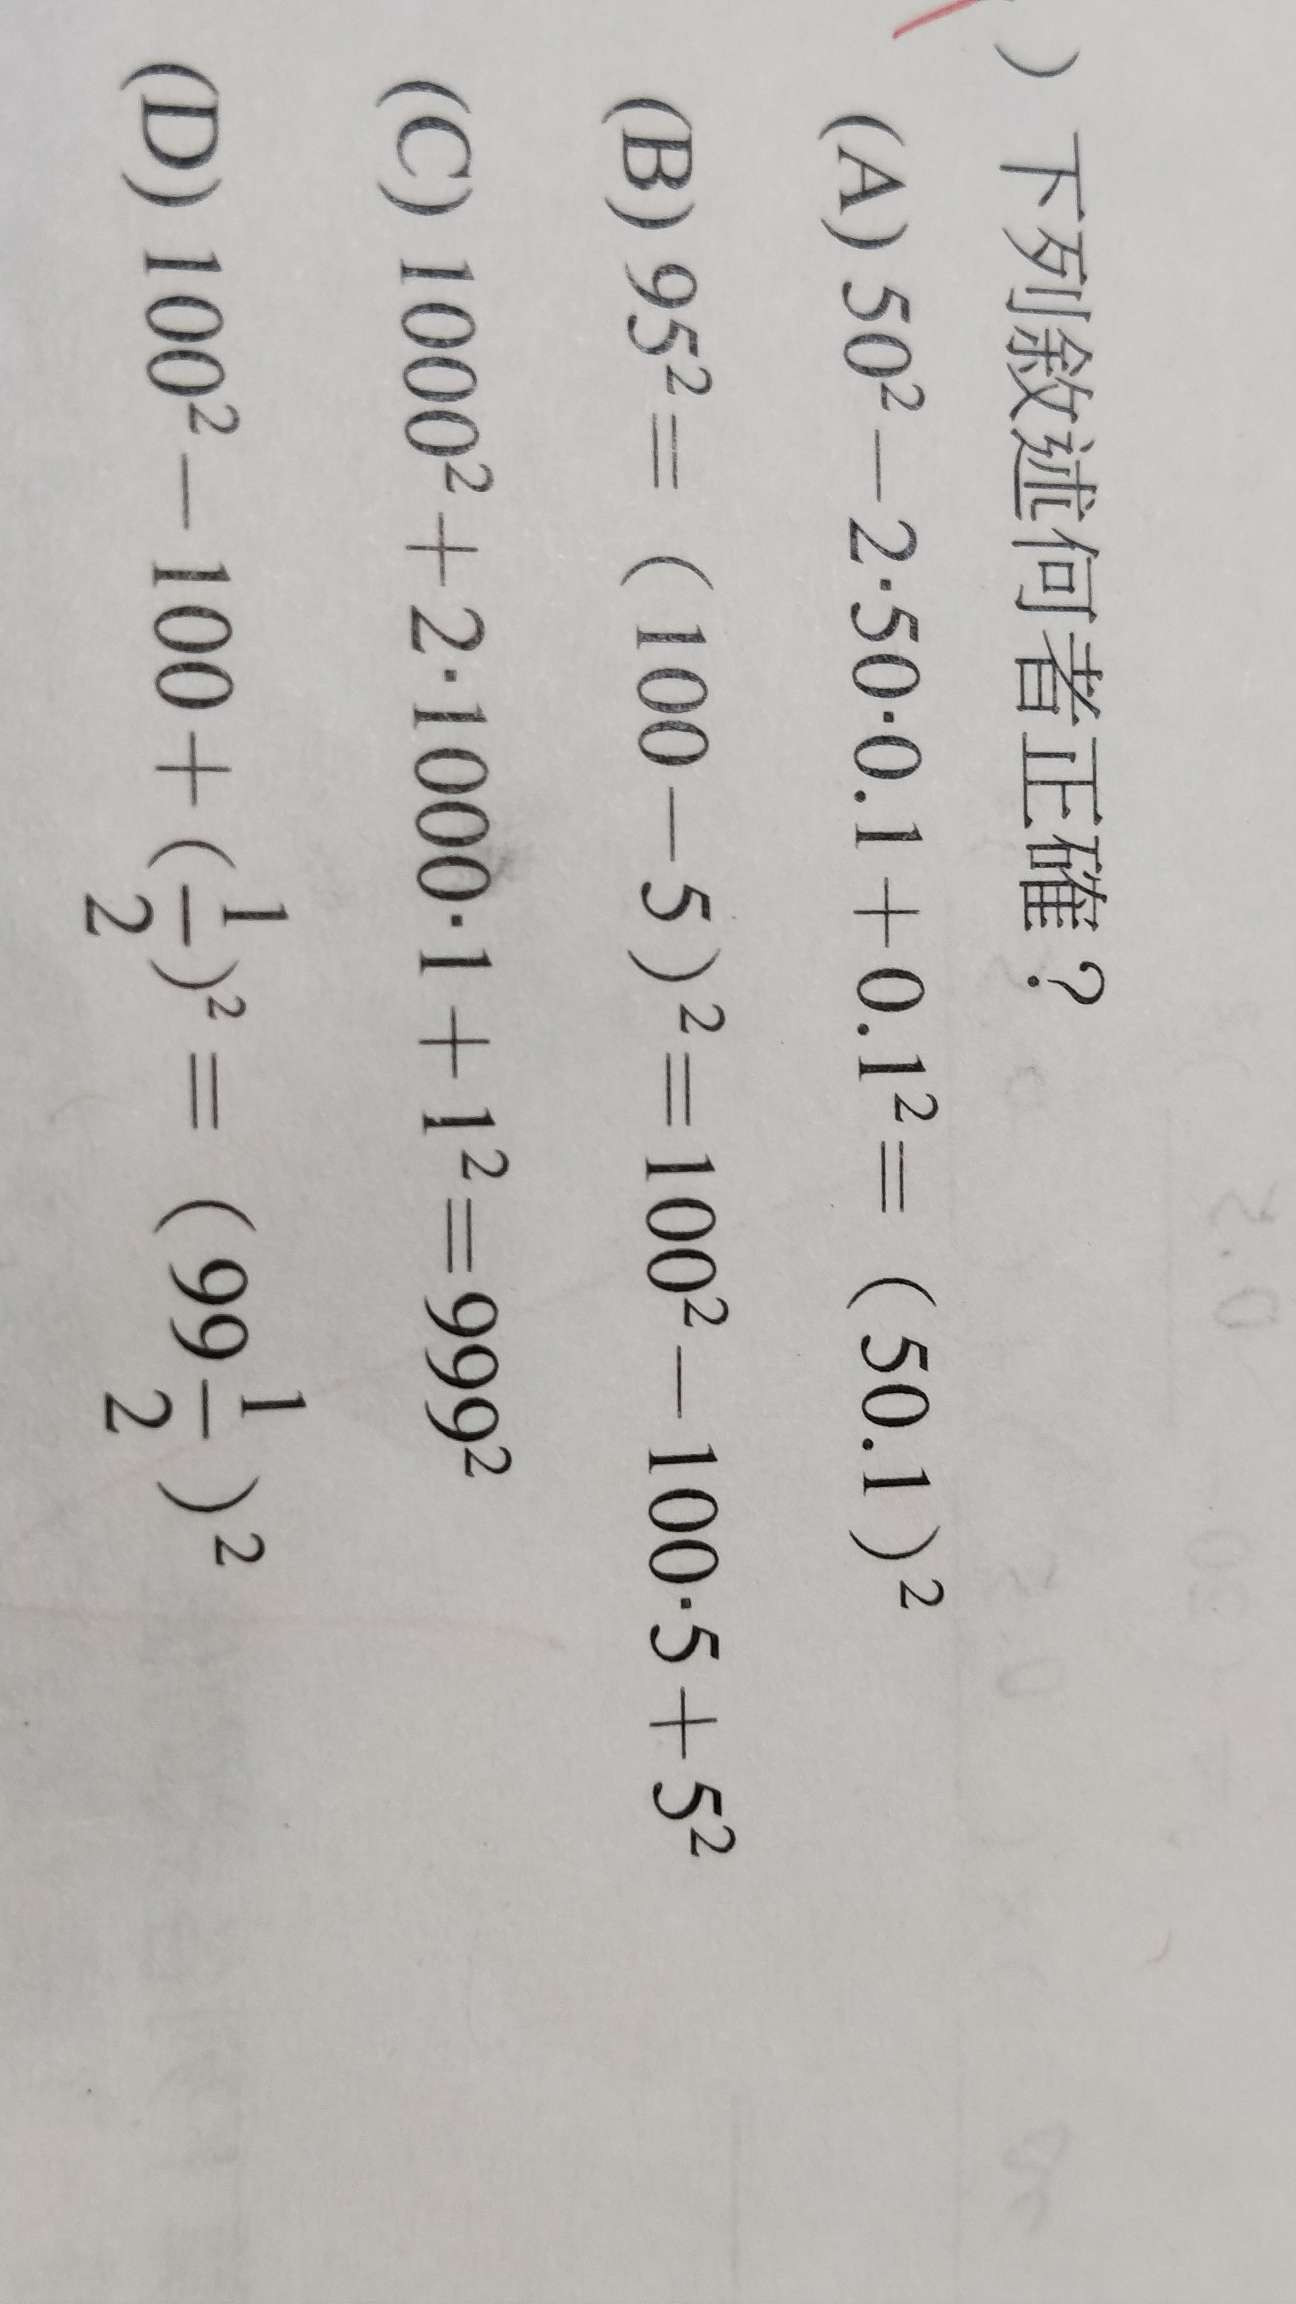 ）下列敘述何者正確？
(A) 50²－2·50·0.1＋0.1²＝（50.1）²
(B) 95²＝（100－5）²＝100²－100·5＋5²
(C) 1000²＋2·1000·1＋1²＝999²
(D) 100²－100＋(1/2)²＝（99 1/2）²